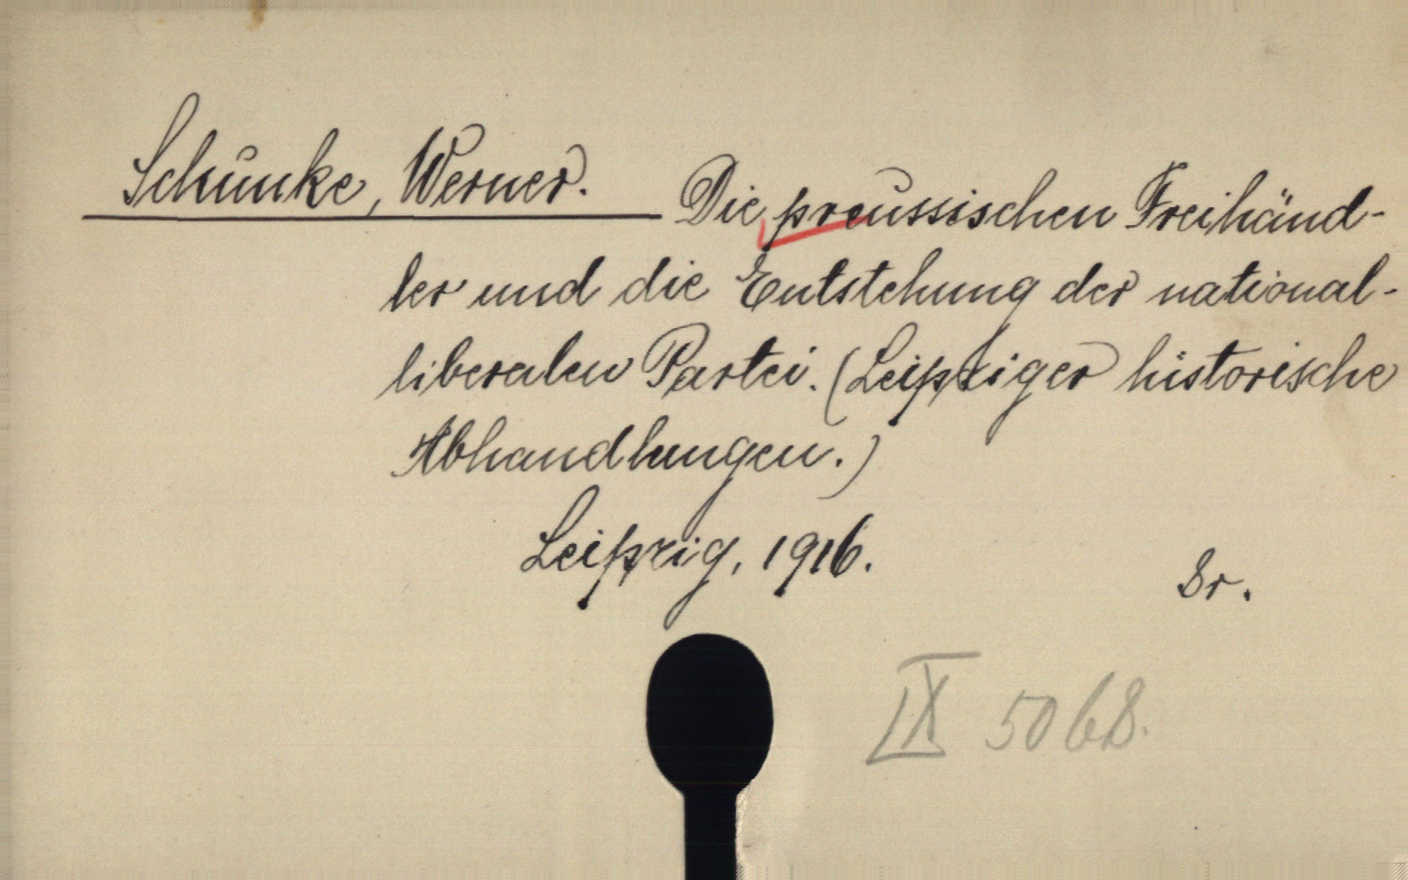 Schunke, Werner. Die preussischen Freihänd-
ler und die Entstehung der national-
liberalen Partei. (Leipziger historische
Abhandlungen.)
Leipzig, 1916.
8r.
IX 5068.